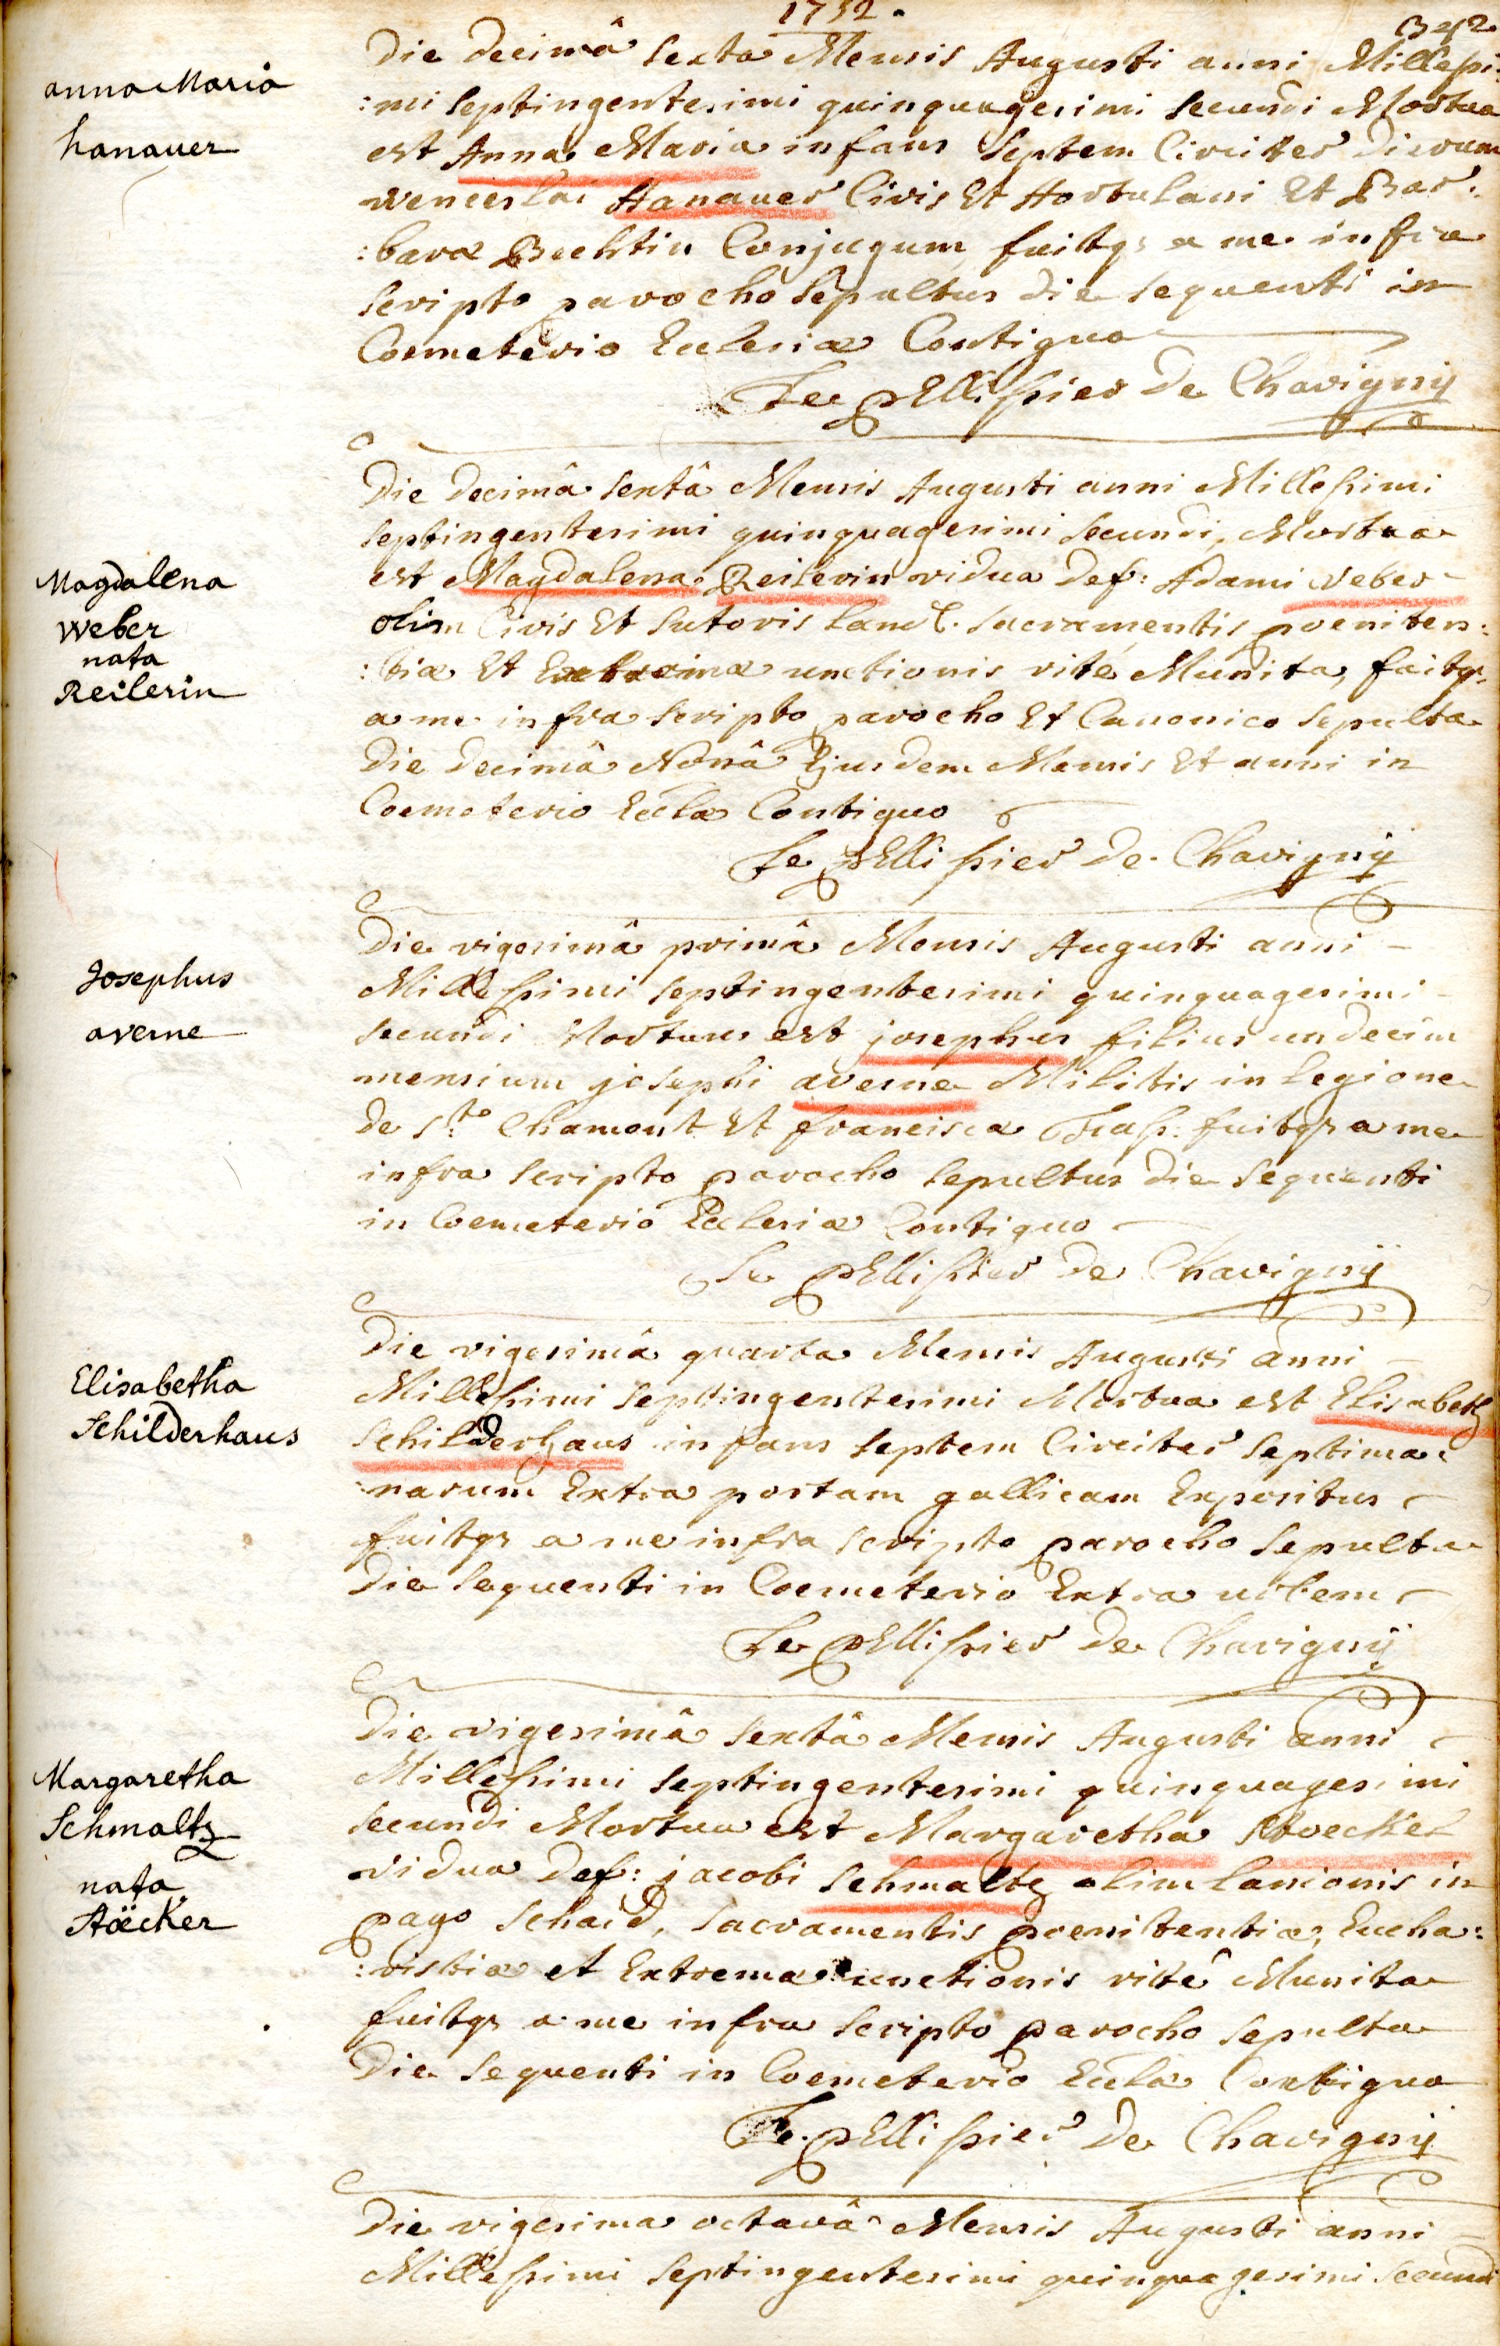 1752.
Die decimâ sexta Mensis Augusti anni Millessi:
anna Maria
:mi septingentesimi quinquagesimi secundi Mortua
hanauer
est Anna Maria infans septem Circiter dierum
wenceslai Hanauer Civis Et Hortulani Et Bar:
:baræ Bechtin Conjugum, fuitqs a me infra
scripto parocho sepultus die sequenti in
Coemeterio Ecclesiæ Contiguo
Le pEllissier de Chavignÿ
Die decimâ sextâ Mensis Augusti anni Millessimi
septingentesimi quinquagesimi secundi, Mortua
Magdalena
est Magdalena Reilerin vidua def: Adami weber
weber
olim Civis Et sutoris land. sacramentis poeniten:
nata
:tiæ Et Extremæ unctionis rité Munita, fuitqs
Reilerin
a me infra scripto parocho Et Canonico sepulta
die decimâ Nonâ Ejusdem Mensis Et anni in
Coemeterio Eccl̃æ Contiguo
Le pEllissier de Chavignÿ
Die vigesimâ primâ Mensis Augusti anni
Josephus
Millessimi septingentesimi quinquagesimi
averne
secundi Mortuus est josephus filius undecim
mensium josephi averne Militis in legione
de Sto Chamont Et francisca fuitqs a me
infra scripto parocho sepultus die sequenti
in Coemeterio Ecclesiæ Contiguo
Le pEllissier de Chavignÿ
Die vigesimâ quarta Mensis Augusti anni
Elisabetha
Millessimi septingentesimi Mortua est Elisabeth
Schilderhaus
Schilderhaus infans septem Circiter septima:
:narum Extra portam gallicam Expositus
fuitqs a me infra scripto parocho sepulta
die sequenti in Coemeterio Extra urbem
Le pEllissier de Chavignÿ
Die vigesimâ sextâ Mensis Augusti anni
Margaretha
Millessimi septingentesimi quinquagesimi
Schmaltz
secundi Mortua est Margaretha Stoecker
nata
vidua def: jacobi schmaltz olim lanionis in
Stöecker
pago schaid, sacramentis poenitentiæ, Eucha:
:ristiæ et Extrema unctionis rité Munita
fuitqs a me infra scripto parocho sepulta
die sequenti in Coemeterio Eccl̃æ Contiguo
Le pEllissier de Chavignÿ
Die vigesima octavâ Mensis Augusti anni
Millessimi septingentesimi quinquagesimi secundi